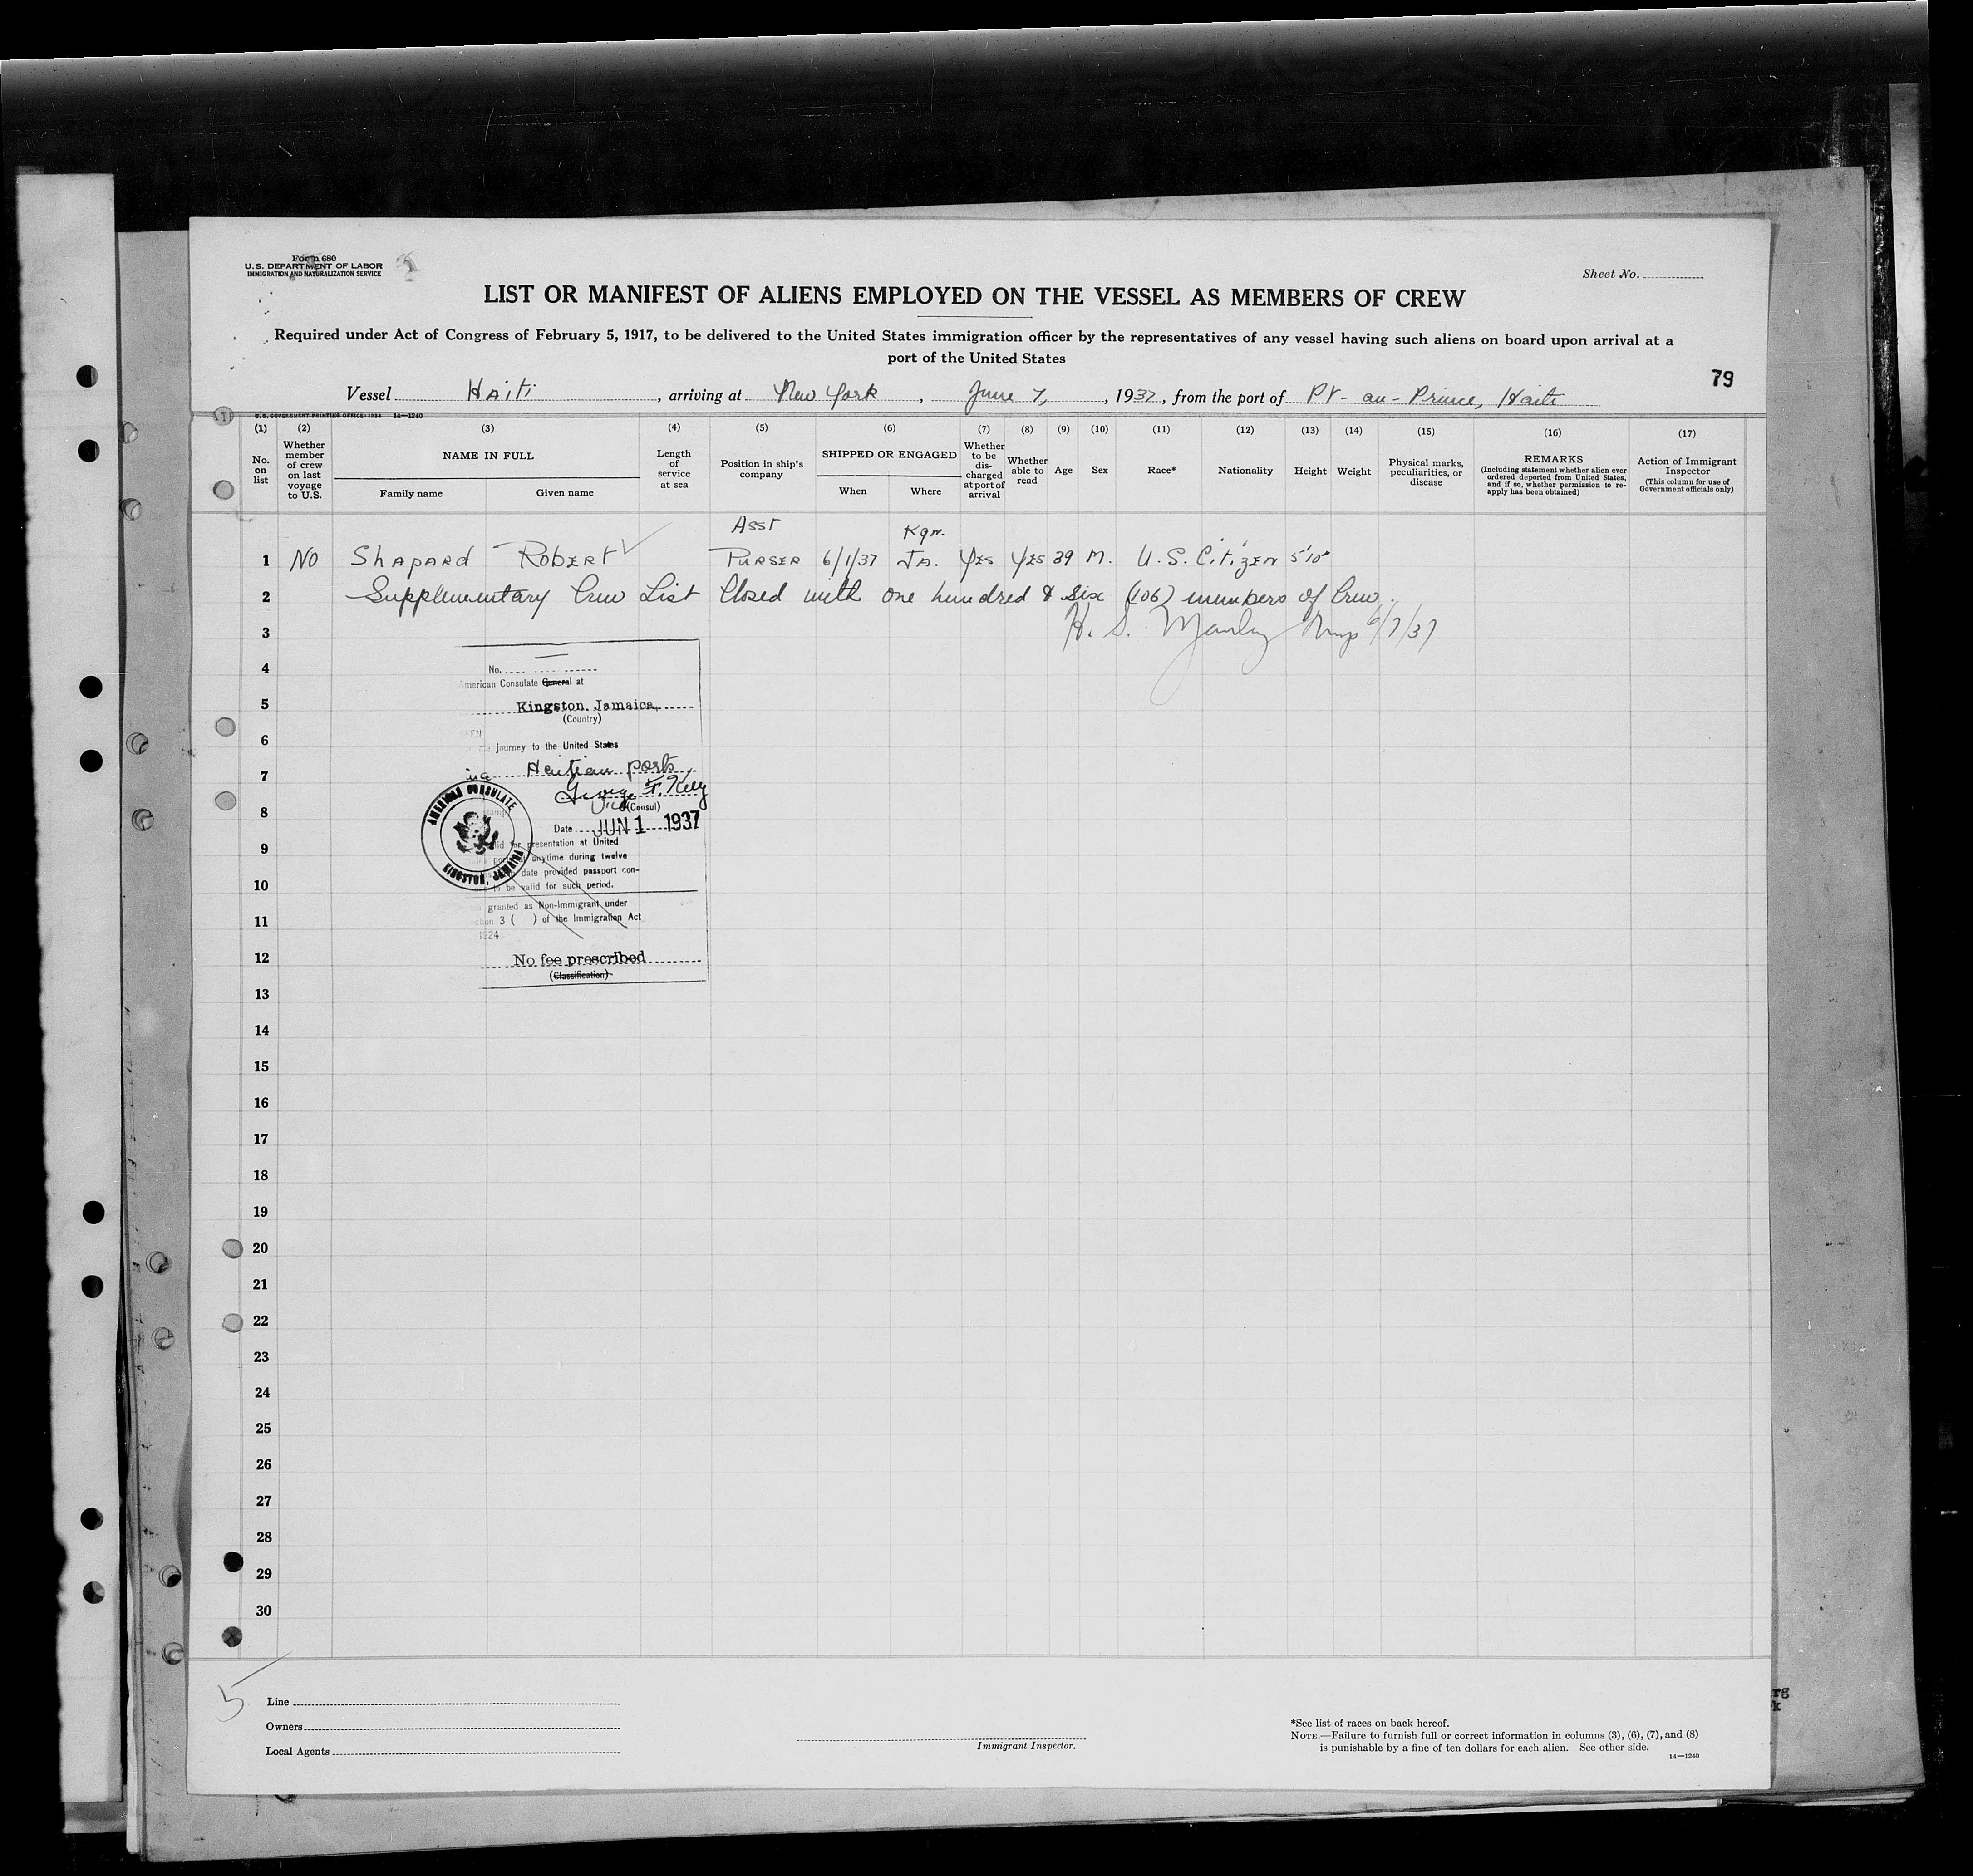 Form 680
U.S. DEPARTMENT OF LABOR
IMMIGRATION AND NATURALIZATION SERVICE
Sheet No.
LIST OR MANIFEST OF ALIENS EMPLOYED ON THE VESSEL AS MEMBERS OF CREW
Required under Act of Congress of February 5, 1917, to be delivered to the United States immigration officer by the representatives of any vessel having such aliens on board upon arrival at a
port of the United States
79
Vessel Haiti, arriving at New York, June 7, 1937, from the port of Pt-au-Prince, Haiti
U.S. GOVERNMENT PRINTING OFFICE: 1934 14—1240
(1) (2) (3) (4) (5) (6) (7) (8) (9) (10) (11) (12) (13) (14) (15) (16) (17)
No. on list
Whether member of crew on last voyage to U.S.
NAME IN FULL
Family name Given name
Length of service at sea
Position in ship's company
SHIPPED OR ENGAGED
When Where
Whether to be discharged at port of arrival
Whether able to read
Age
Sex
Race*
Nationality
Height
Weight
Physical marks, peculiarities, or disease
REMARKS
(Including statement whether alien ever ordered deported from United States, and if so, whether permission to re-apply has been obtained)
Action of Immigrant Inspector
(This column for use of Government officials only)
Asst Kgn.
1 No Shapard Robert Purser 6/1/37 Ja. Yes Yes 39 M. U.S. Citizen 5'10"
2 Supplementary Crew List Closed with one hundred & six (106) members of Crew.
3 H. S. 6/7/37
4
5
6
7
8
9
10
11
12
13
14
15
16
17
18
19
20
21
22
23
24
25
26
27
28
29
30
No.
American Consulate General at
Kingston, Jamaica
(Country)
SEEN
journey to the United States
via Haitian ports
George F. Kelly
Vice (Consul)
AMERICAN CONSULATE
KINGSTON, JAMAICA
Date JUN 1 1937
valid for presentation at United
ports at anytime during twelve
date provided passport con-
to be valid for such period.
granted as Non-Immigrant under
Section 3 ( ) of the Immigration Act
1924
No fee prescribed
(Classification)
5
Line
Owners
Local Agents
Immigrant Inspector.
*See list of races on back hereof.
NOTE.—Failure to furnish full or correct information in columns (3), (6), (7), and (8)
is punishable by a fine of ten dollars for each alien. See other side.
14—1240
rg
k